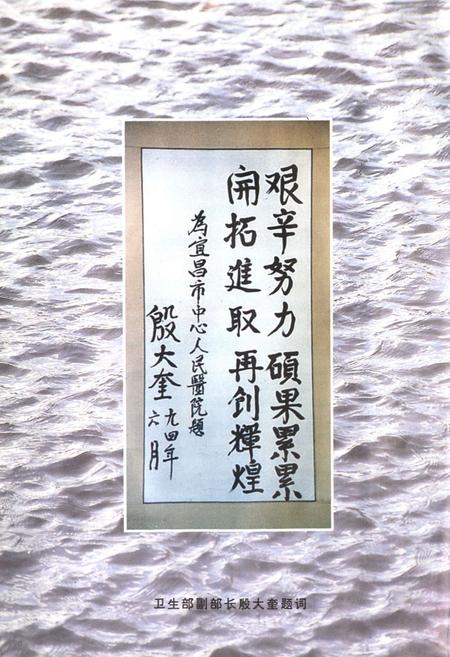 艰辛努力 碩果累累
開拓進取 再创輝煌
為宜昌市中心人民醫院題
殷大奎 九四年
六月
卫生部副部长殷大奎题词